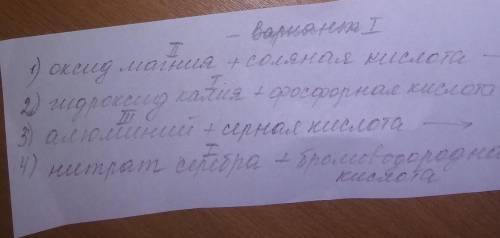 - вариант I
II
1) оксид магния + соляная кислота -
I
2) гидроксид калия + фосфорная кислота
III
3) алюминий + серная кислота →
I
4) нитрат серебра + бромоводородна
кислота